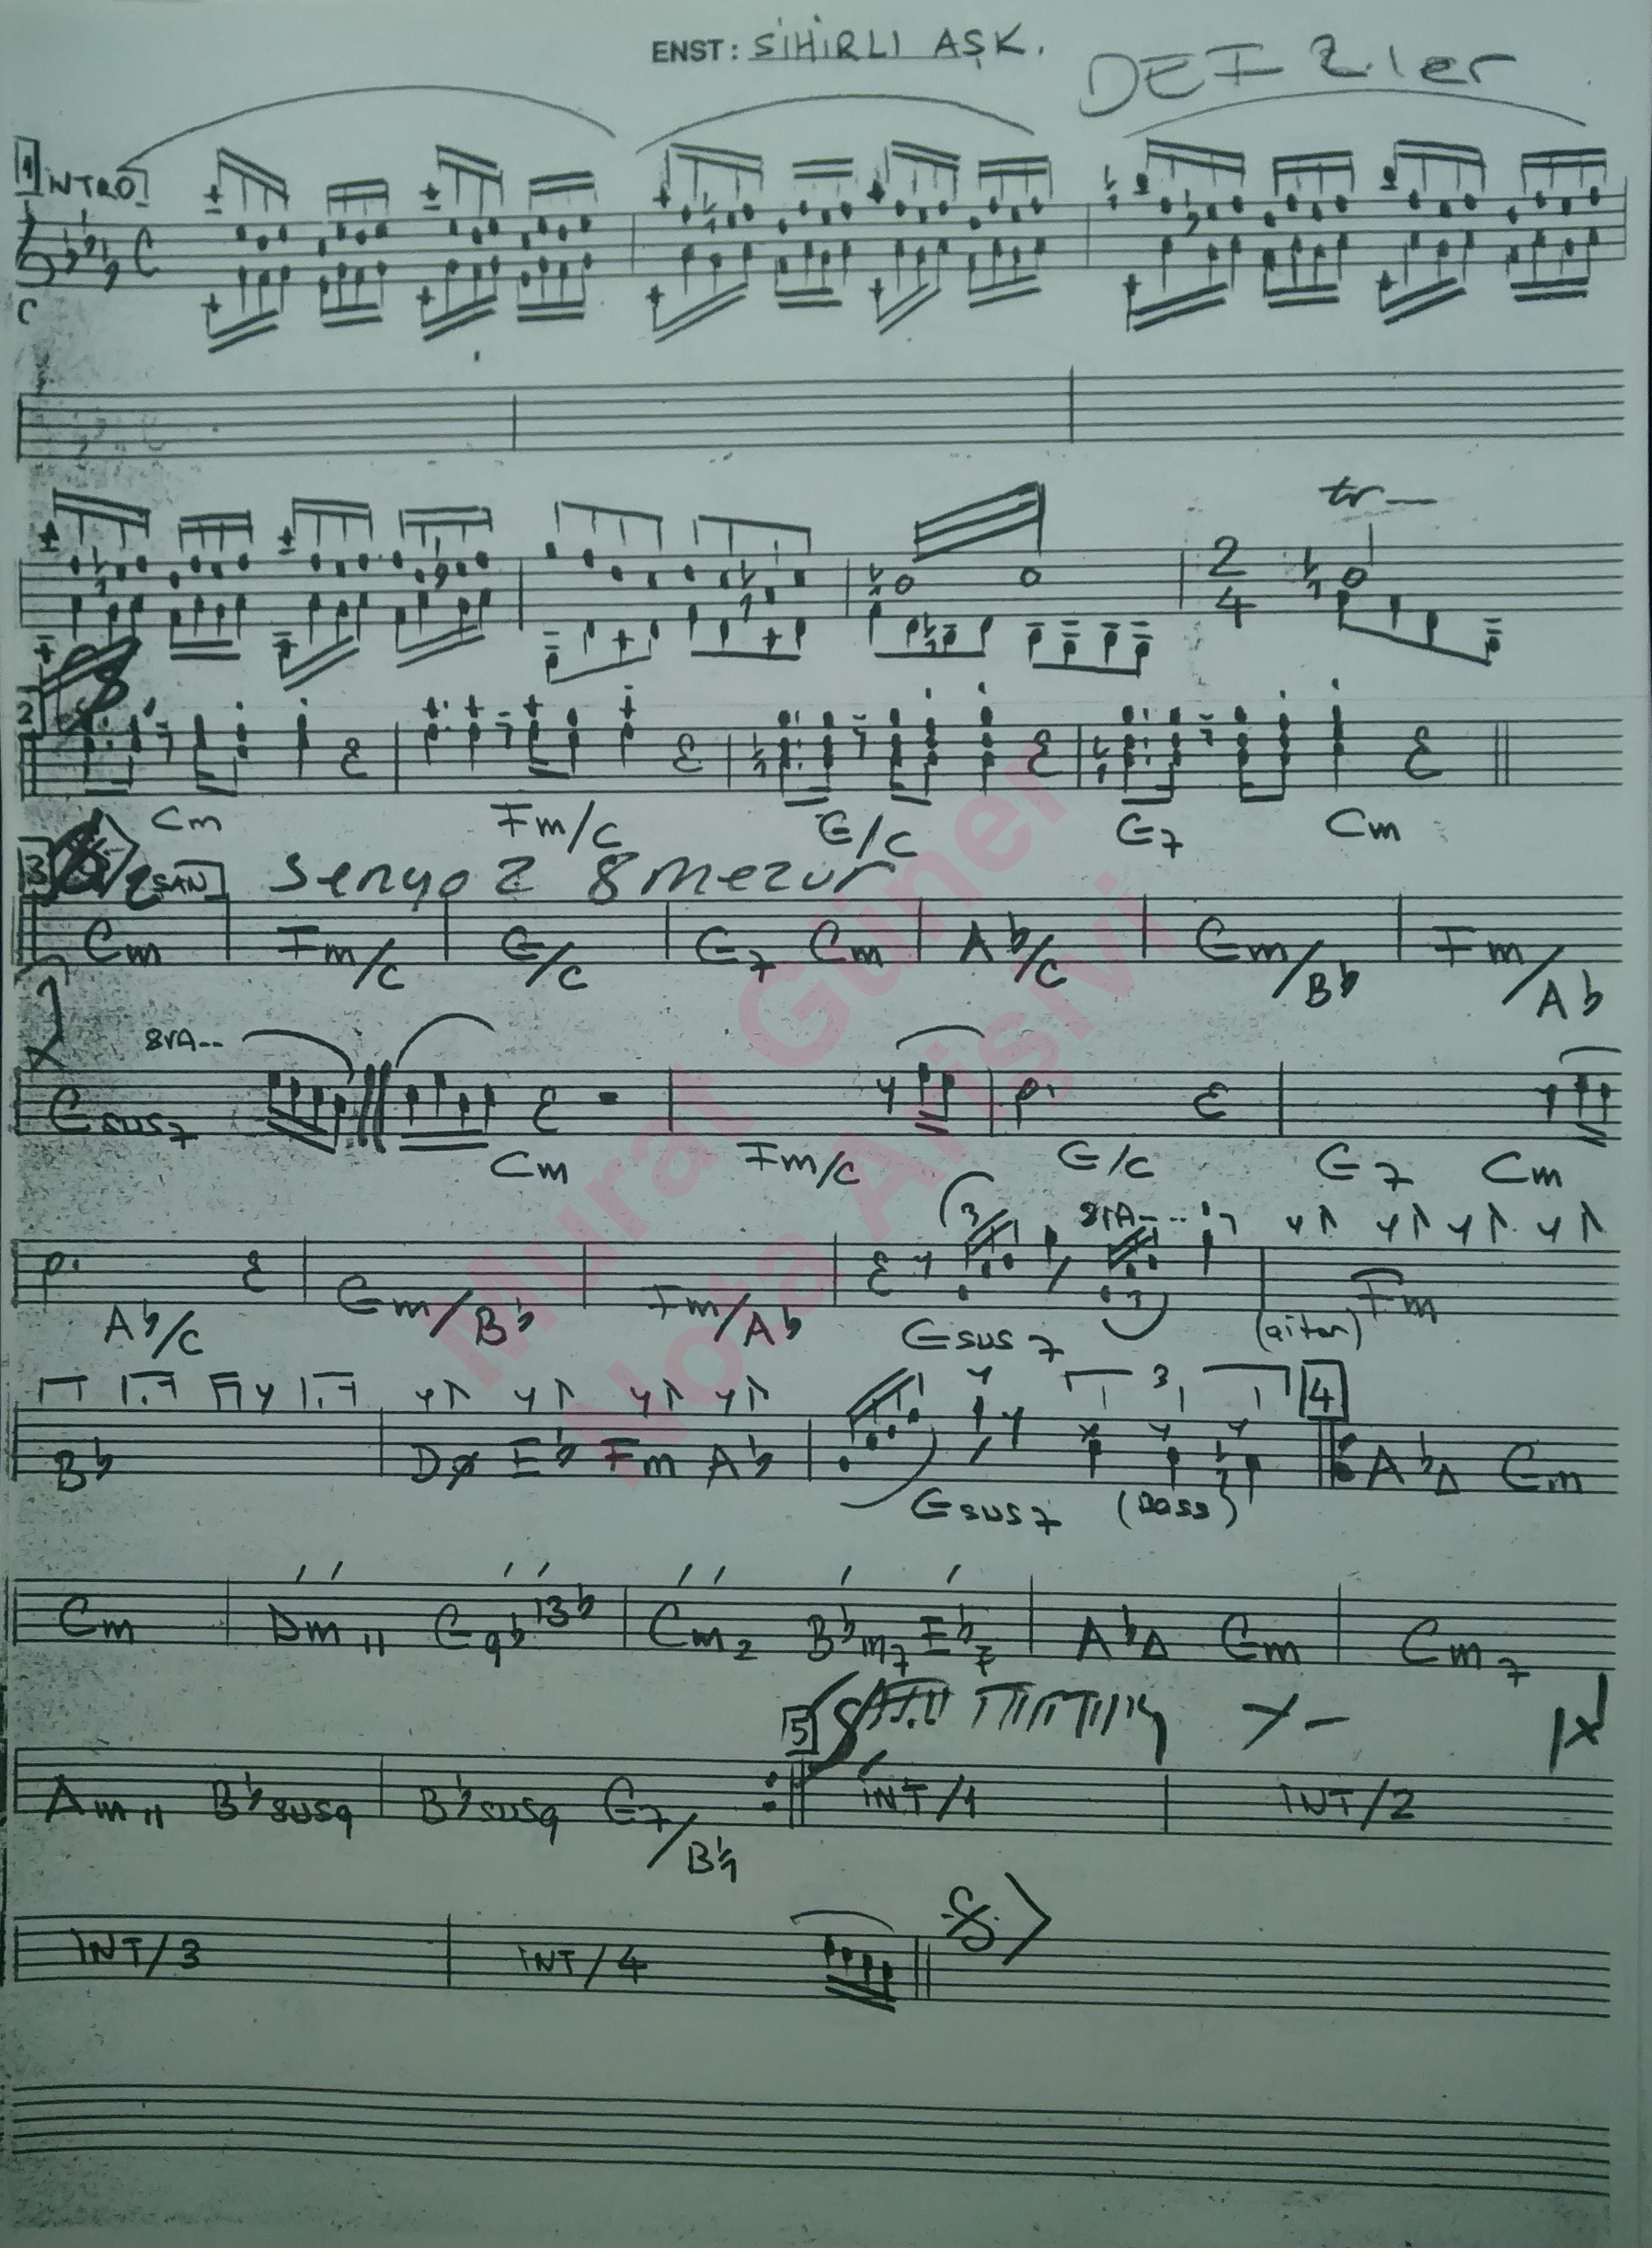 ENST: SİHİRLİ AŞK.
DEF Ziler
1 INTRO
C
tr
2 4
2
Cm Fm/C G/C G7 Cm
3 ŞAN Senyo 2 8 mezur
Cm Fm/C G/C G7 Cm Ab/C Gm/Bb Fm/Ab
8vA--
Gsus7 Cm Fm/C G/C G7 Cm
3 8vA---
Ab/C Gm/Bb Fm/Ab Gsus7 3 (gitar) Fm
3 4
Bb DØ Eb Fm Ab Gsus7 (Bass) AbΔ Gm
Cm Dm11 G9b13b Cm2 Bbm7 Eb7 AbΔ Gm Cm7
5
Am11 Bbsus9 Bbsus9 G7/B♮ İNT/1 İNT/2
İNT/3 İNT/4
Murat Güner
Nota Arşivi